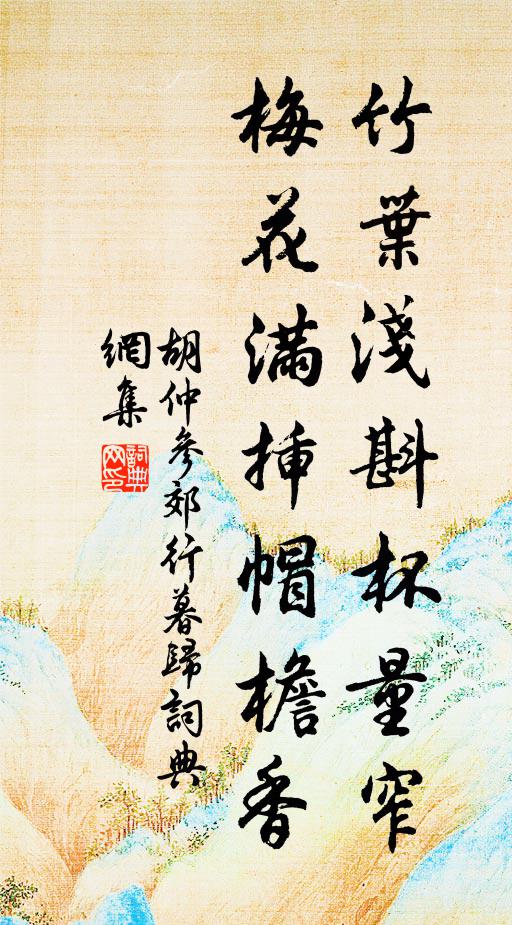 竹葉淺斟杯量窄
梅花滿挿帽檐香
胡仲參郊行暮歸詞典
網集
詞典
网印